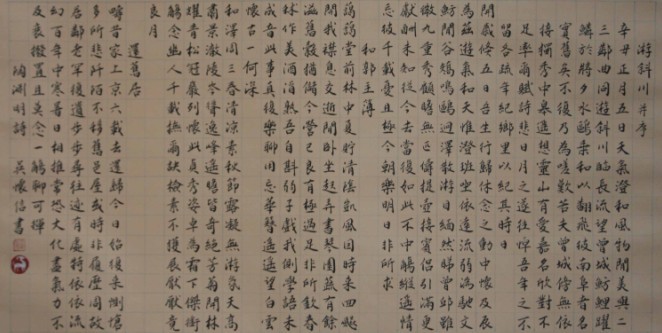 游斜川并序
辛丑正月五日天氣澄和風物閒美與二
三鄰曲同遊斜川臨長流望曾城魴鯉躍
鱗於將夕水鷗乘和以翻飛彼南阜者名
實舊矣不復乃為嗟歎若夫曾城傍無依
接獨秀中皋遙想靈山有愛嘉名欣對不
足率爾賦詩悲日月之遂往悼吾年之不
留各疏年紀鄉里以紀其時
開歲倏五日吾生行歸休念之動中懷及辰
為茲遊氣和天惟澄班坐依遠流弱湍馳文
魴閒谷矯鳴鷗迥澤散游目緬然睇曾丘雖
微九重秀顧瞻無匹儔提壺接賓侶引滿更
獻酬未知從今去當復如此不中觴縱遙情
忘彼千載憂且極今朝樂明日非所求
和郭主簿
藹藹堂前林中夏貯清陰凱風因時來回飆
開我襟息交遊閒卧坐起弄書琴園蔬有餘
滋舊穀猶儲今營己良有極過足非所欽舂
秫作美酒酒熟吾自斟弱子戲我側學語未
成音此事真復樂聊用忘華簪遙遙望白雲
懷古一何深
和澤周三春清涼素秋節露凝無游氛天高
肅景澈陵岑聳逸峰遙瞻皆奇絕芳菊開林
耀青松冠巖列懷此貞秀姿卓為霜下傑銜
觴念幽人千載撫爾訣檢素不獲展厭厭竟
良月
還舊居
疇昔家上京六載去還歸今日始復來惻愴
多所悲阡陌不移舊邑屋或時非履歷周故
居鄰老罕復遺步步尋往迹有處特依依流
幻百年中寒暑日相推常恐大化盡氣力不
及衰撥置且莫念一觴聊可揮
陶淵明詩
書